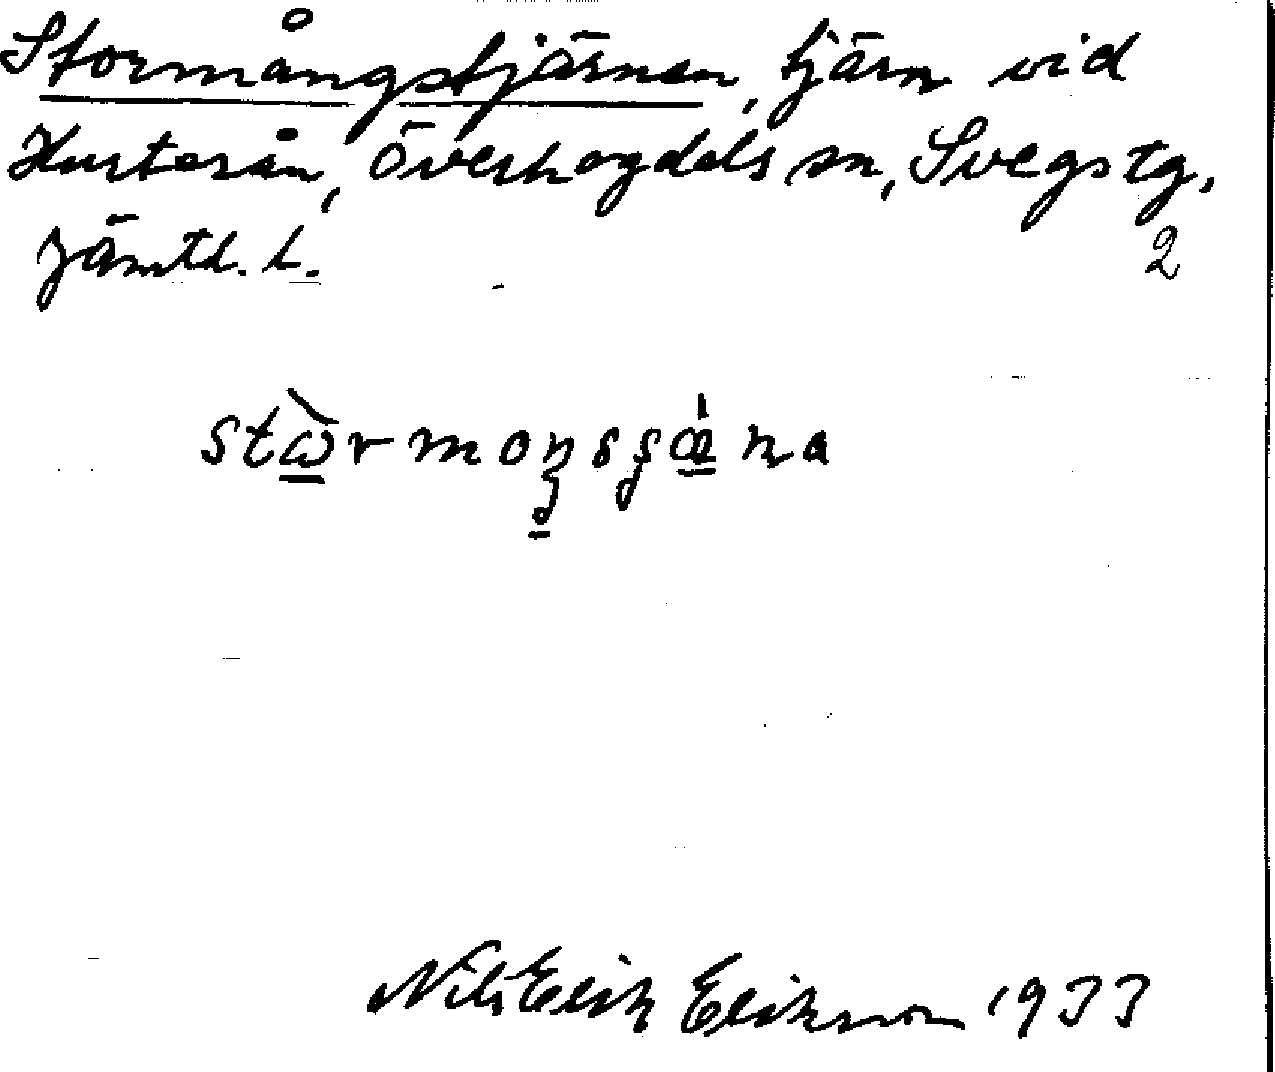 Stormångstjärnen, tjärn vid
Överhogdals sn, Svegs tg,
Jämtl. l. 2
Nils Erik Erikson 1933